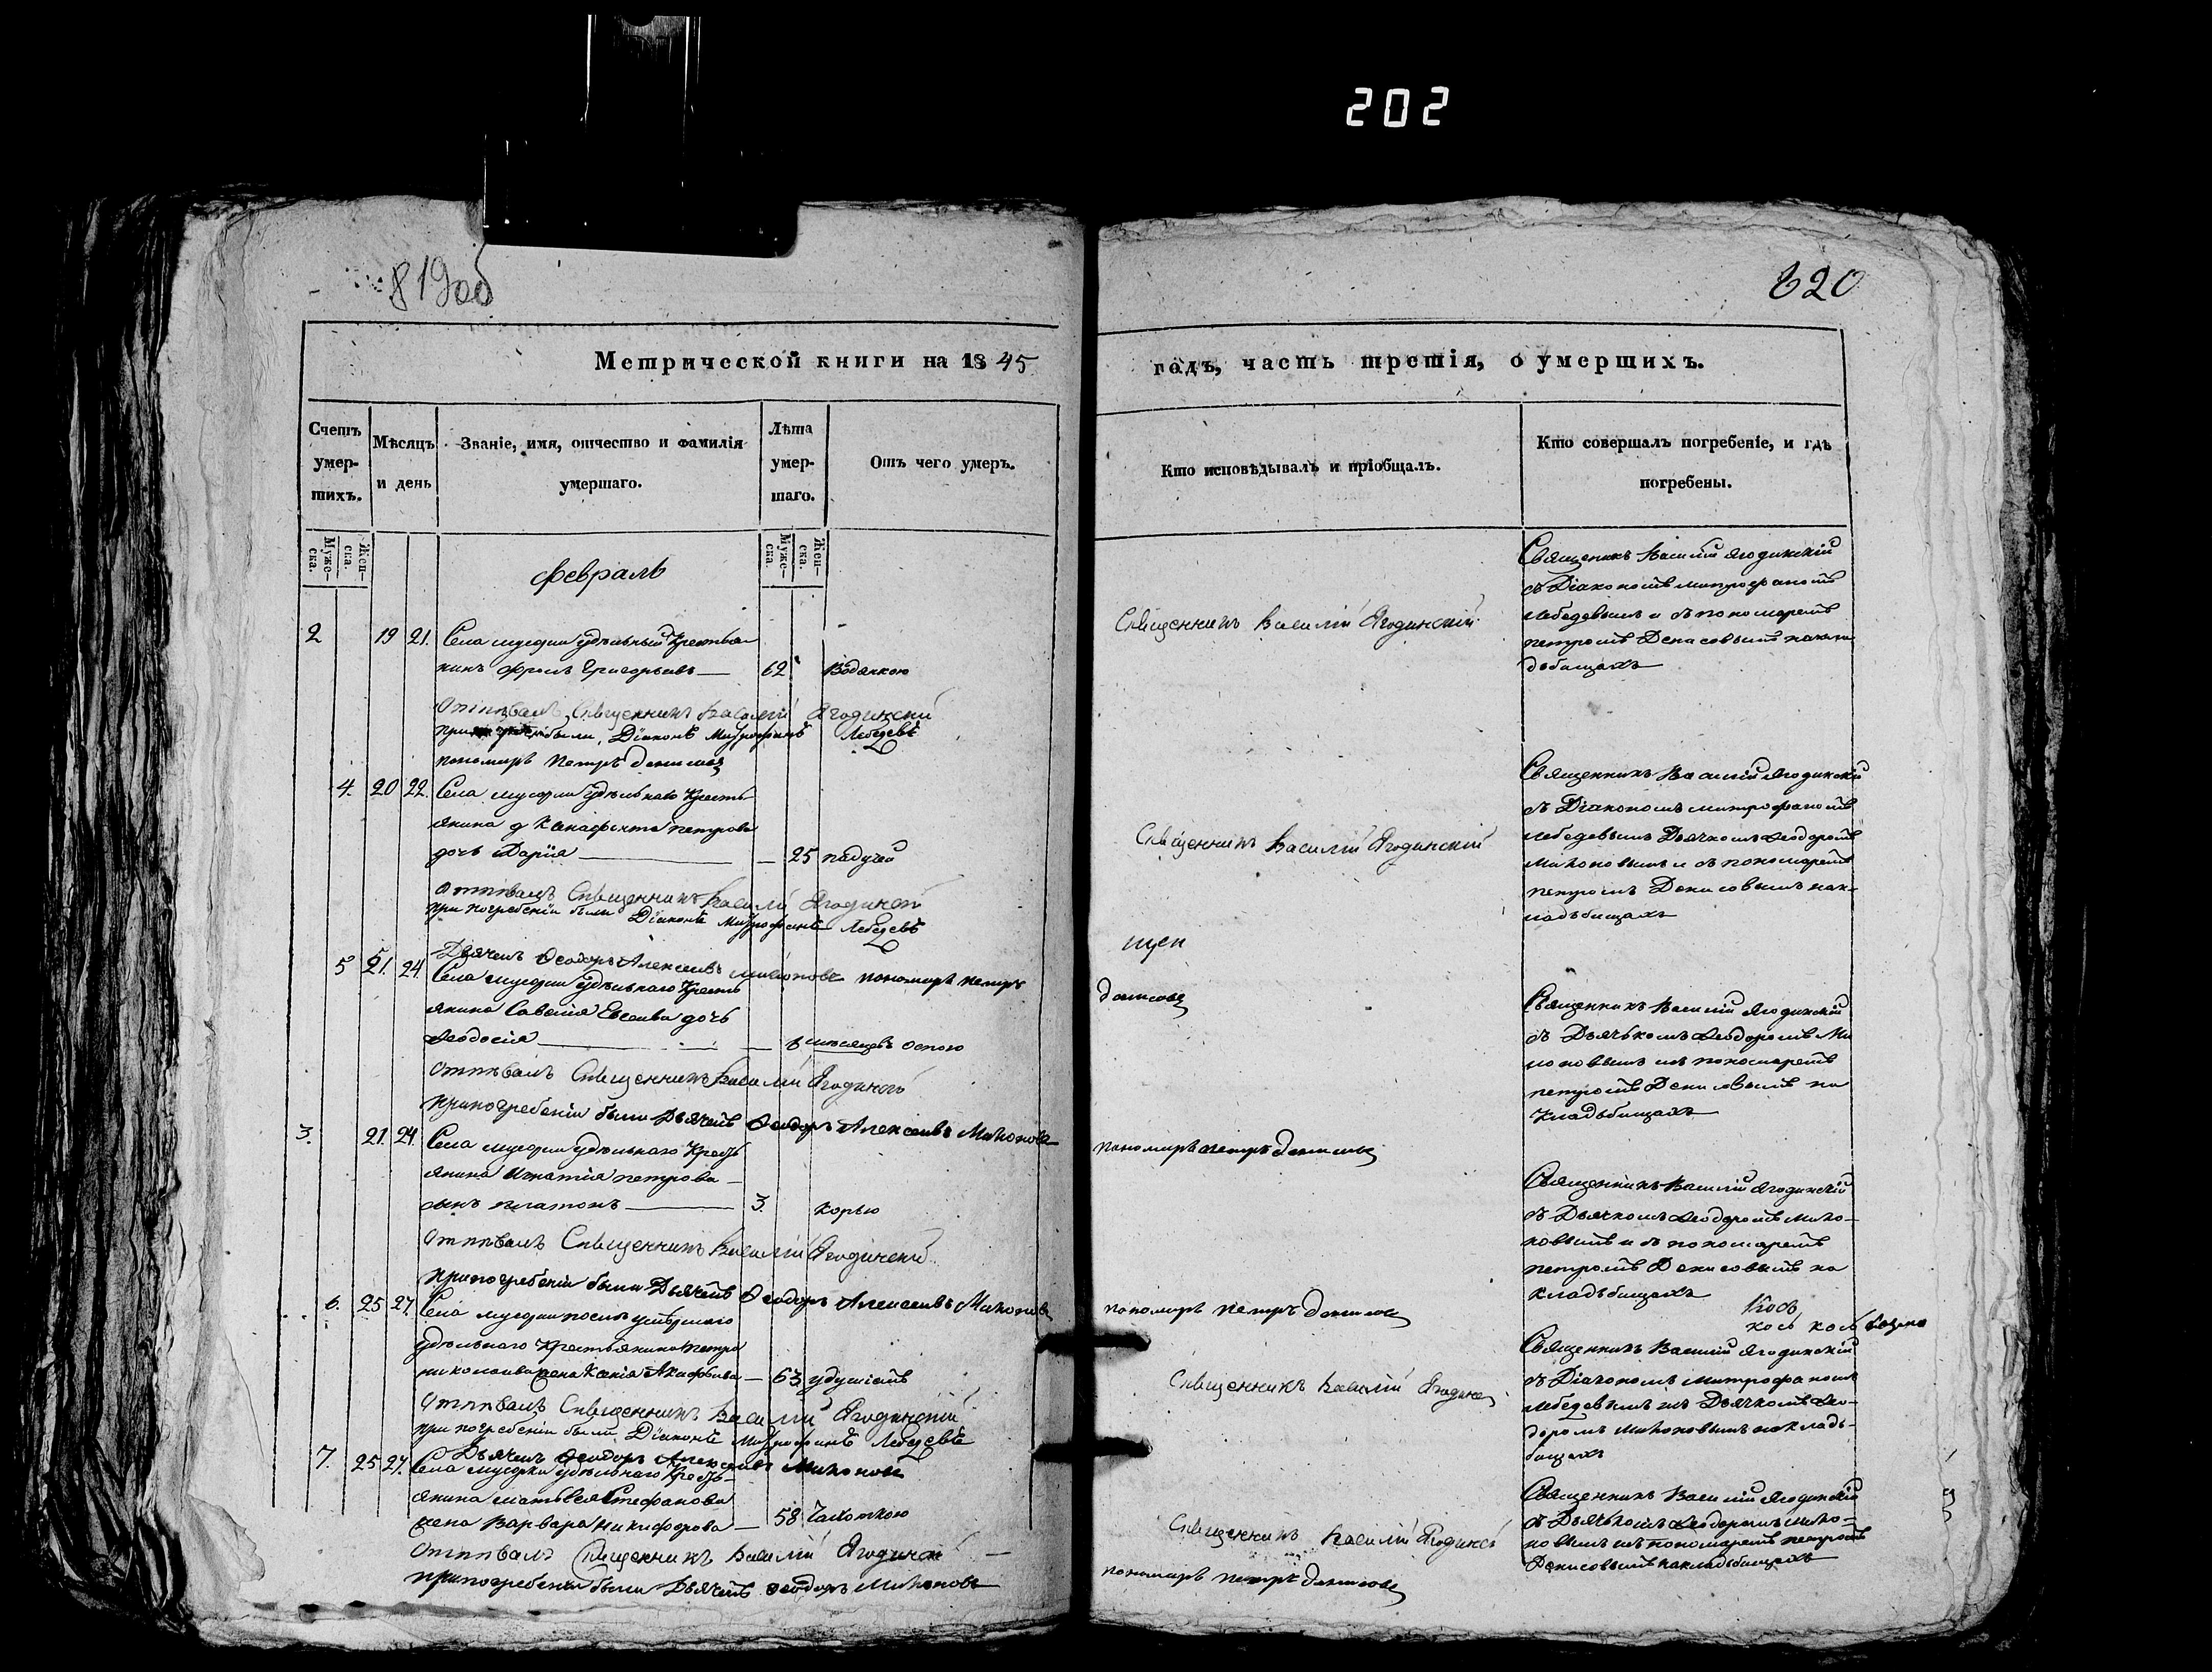 202
819об
820
Метрической книги на 1845
годъ, часть третія, о умершихъ.
Счетъ умер-шихъ.
Мѣсяцъ и день
Званіе, имя, отчество и фамилія умершаго.
Лѣта умер-шаго.
Отъ чего умеръ.
Кто исповѣдывалъ и пріобщалъ.
Кто совершалъ погребеніе, и гдѣ погребены.
Муже-ска.
Жен-ска.
Муже-ска.
Жен-ска.
февраль
2 19 21. Села удѣльный Крестья-
нинъ Фролъ Григорьевъ 62 Водянкою
Священникъ Василій Ягодинскій
Священникъ Василій Ягодинскій
съ Діакономъ митрофаномъ
лебедевымъ и съ пономаремъ
петромъ Денисовымъ накла
дбищахъ
Отпѣвалъ Священникъ Василій Ягодинскій
при были Діаконъ Митрофанъ Лебедевъ
пономарь Петръ денисовъ
4. 20 22. Села удѣльнаго Кресть-
янина петрова
дочь Дарія 25 падучей
Священникъ Василій Ягодинскій
Священникъ Василій Ягодинскій
съ Діакономъ митрофаномъ
лебедевымъ Дьячкомъ Ѳеодоромъ
и съ пономаремъ
петромъ Денисовымъ нак-
ладьбищахъ
отпѣвалъ Священникъ Василій Ягодинскій
при погребеніи были Діаконъ Митрофанъ Лебедевъ
Дьячекъ Ѳеодоръ Алексеевъ пономарь петръ
денисовъ
5 21. 24 Села удѣльнаго Кресть
янина Савелія Евсеива дочь
Ѳеодосія 8 мѣсяцевъ Оспою
Священникъ Василій Ягодинскій
съ Дьячькомъ Ѳеодоромъ
пономаремъ
петромъ Денисовымъ на
Кладьбищахъ
отпѣвалъ Священникъ Василій Ягодинскій
припогребеніи были Дьячекъ Ѳеодоръ Алексеивъ
пономарь петръ денисовъ
3. 21. 24. Села удѣльнаго Кресть
янина Игнатія петрова
сынъ платонъ 3. корью
Священникъ Василій Ягодинскій
съ Дьячкомъ Ѳеодоромъ
и съ пономаремъ
петромъ Денисовымъ на
кладьбищахъ
отпѣвалъ Священникъ Василій Ягодинскій
припогребеніи были Дьячекъ Ѳеодоръ Алексеивъ
пономарь петръ денисовъ
6. 25 27. Села послѣ умершаго
удѣльнаго крестьянина петра
николаива жена Ксенія 63 удушіемъ
Священникъ Василій
Священникъ Василій Ягодинскій
съ Діакономъ митрофаномъ
лебедевымъ Дьячкомъ Ѳео-
доромъ накладь-
бищахъ
Отпѣвалъ Священникъ Василій Ягодинскій
при погребеніи были Діаконъ Митрофанъ Лебедевъ
Дьячекъ Ѳеодоръ Алексеивъ
7. 25 27. Села удѣльнаго Кресть-
янина матвея Стефанова
жена Варвара Никифорова 58 Чахоткою
Священникъ Василій
Священникъ Василій Ягодинскій
съ Дьячькомъ Ѳеодоромъ
пономаремъ петромъ
Денисовымъ накладьбищахъ
Отпѣвалъ Священникъ Василій
припогребеніи были Дьячекъ Ѳеодоръ
пономарь петръ денисовъ